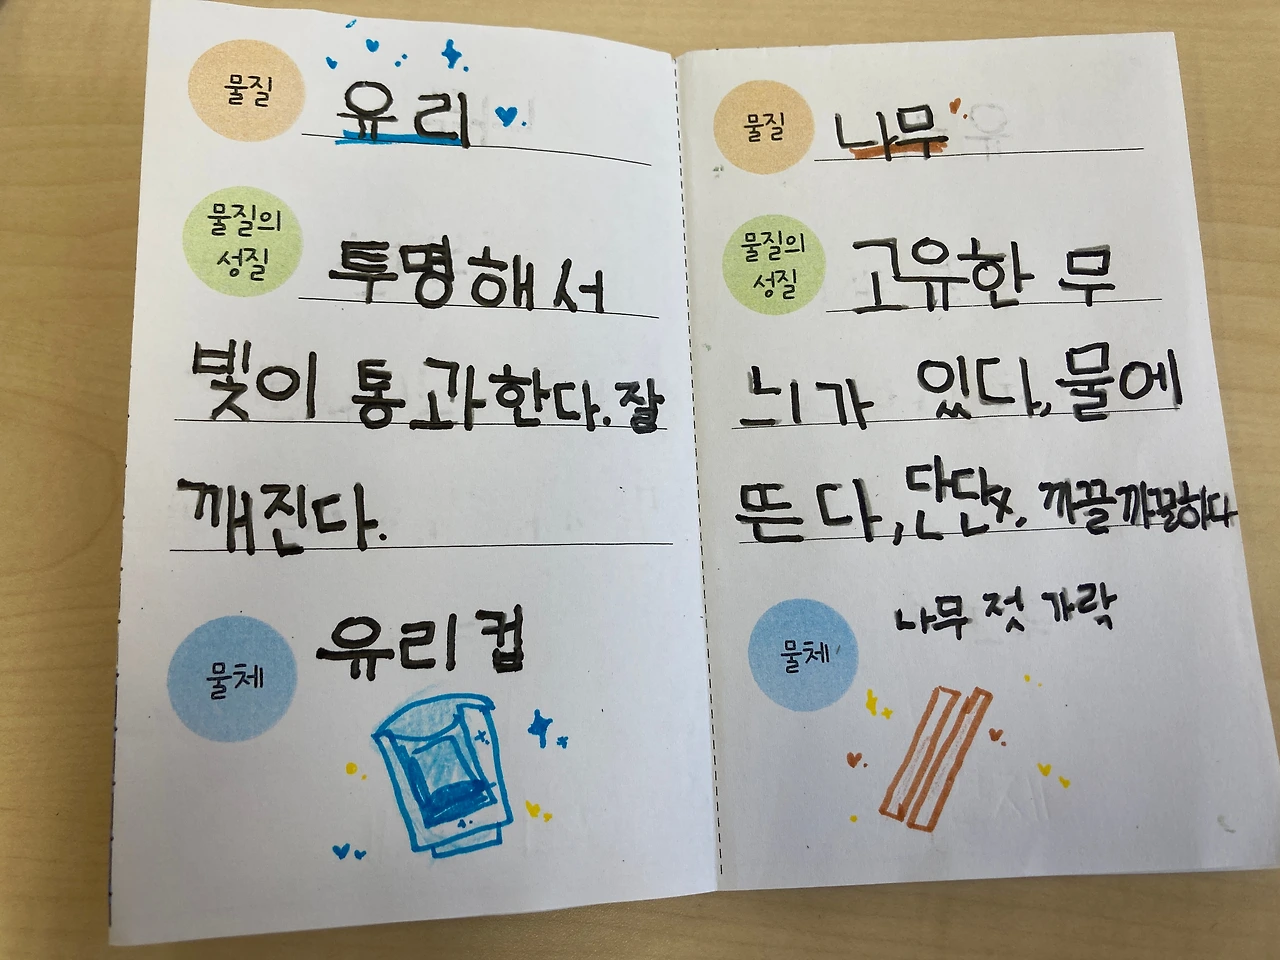 물질
유리
물질의
성질
투명해서
빛이 통과한다. 잘
깨진다.
물체
유리컵
물질
나무
물질의
성질
고유한 무
늬가 있다, 물에
뜬다, 단단x, 까끌까끌하다
물체
나무젓가락